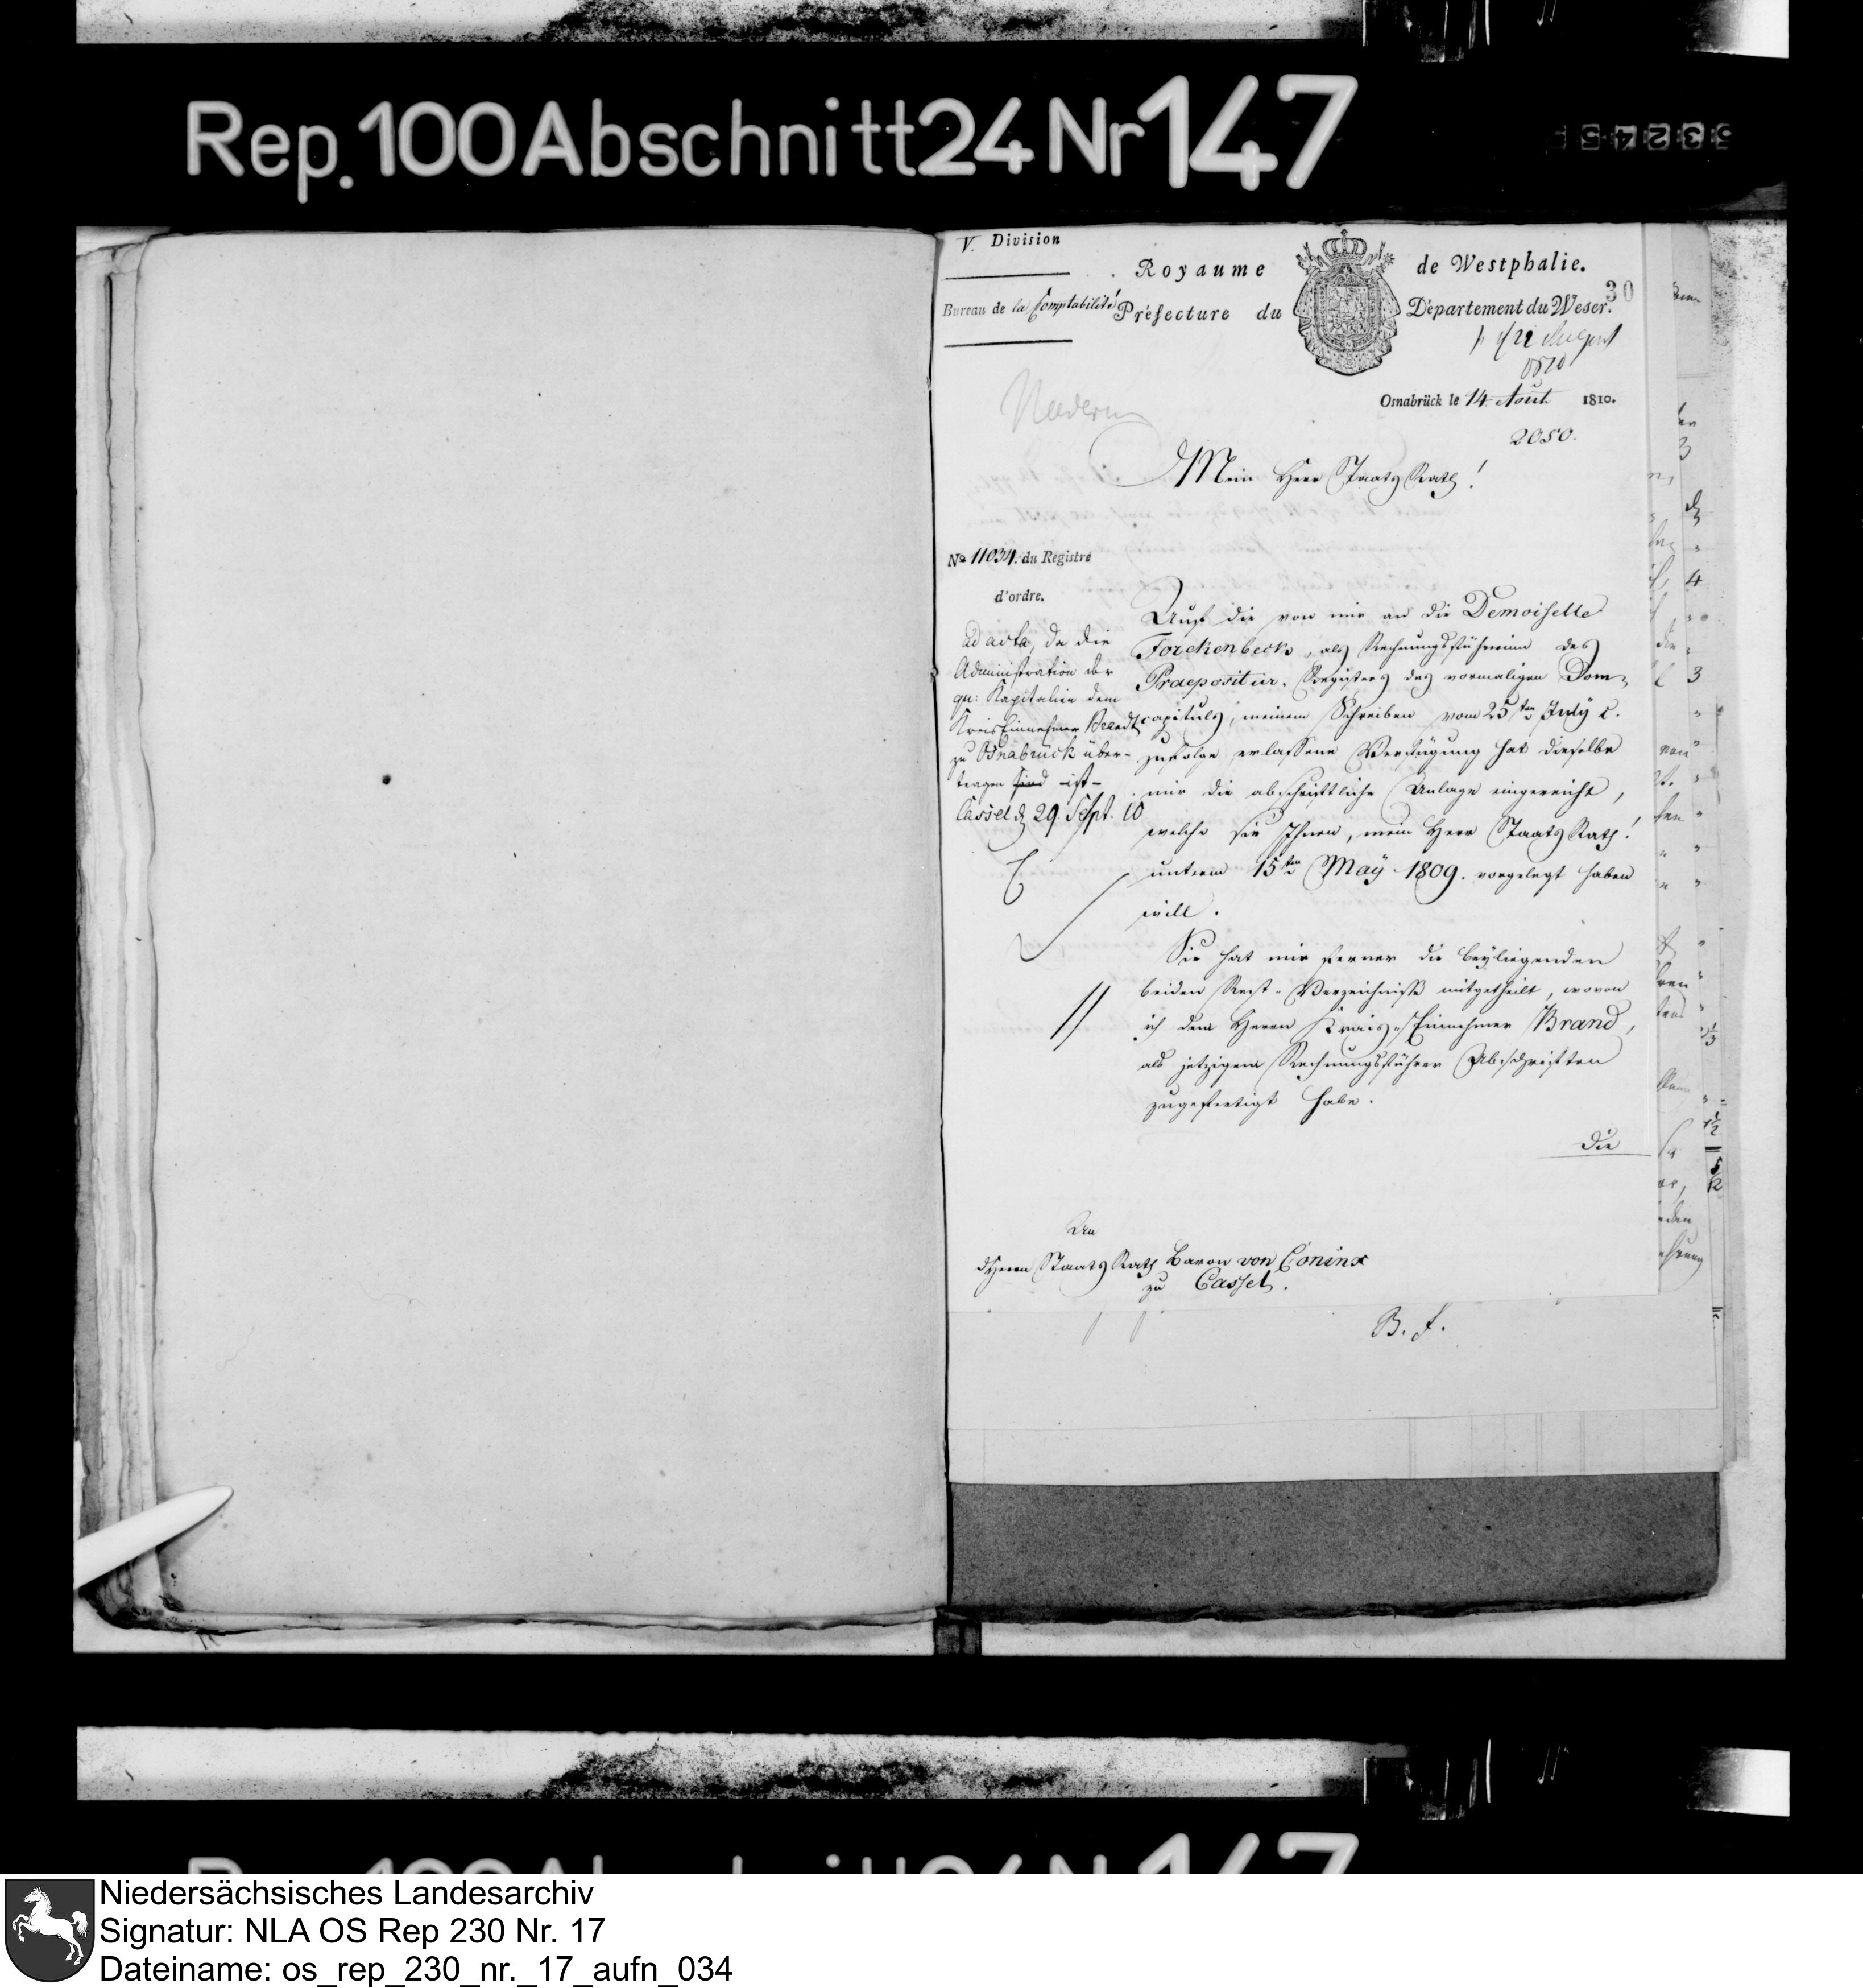 Rep. 100 Abschnitt 24 Nr 147
V. Division
Royaume de Westphalie.
30
Bureau de la Comptabilité
Préfecture du Département du Weser.
22 August
1810
Osnabrück le 14 Aout 1810.
2050.
Mein Herr Staats Rath!
No 11034. du Registre
d'ordre.
ad acta, da die
Administration der
qu: Kapitalien dem
Kreis Einnehmer Brandt
zu Osnabrück über-
tragen sind ist-
Cassel d 29. Sept. 10
Auf die von mir an die Demoiselle
Forckenbeck, als Rechnungsführerinn des
Praepositur-Registers des vormaligen Dom-
capituls, meinem Schreiben vom 25ten July c.
zufolge erlassene Verfügung hat dieselbe
mir die abschriftliche Anlage eingereicht,
welche sie Ihnen, mein Herr Staats Rath!
unterm 15ten May 1809. vorgelegt haben
will.
Sie hat mir ferner die beyliegenden
beiden Rest-Verzeichniße mitgetheilt, wovon
ich dem Herrn Krais-Einnehmer Brand,
als jetzigem Rechnungsführer Abschriften
zugefertigt habe.
Die
An
d Herrn Staats Rath Baron von Coninx
zu Cassel.
B. f.
Rep. 100 Abschnitt 24 Nr 147
Niedersächsisches Landesarchiv
Signatur: NLA OS Rep 230 Nr. 17
Dateiname: os_rep_230_nr._17_aufn_034